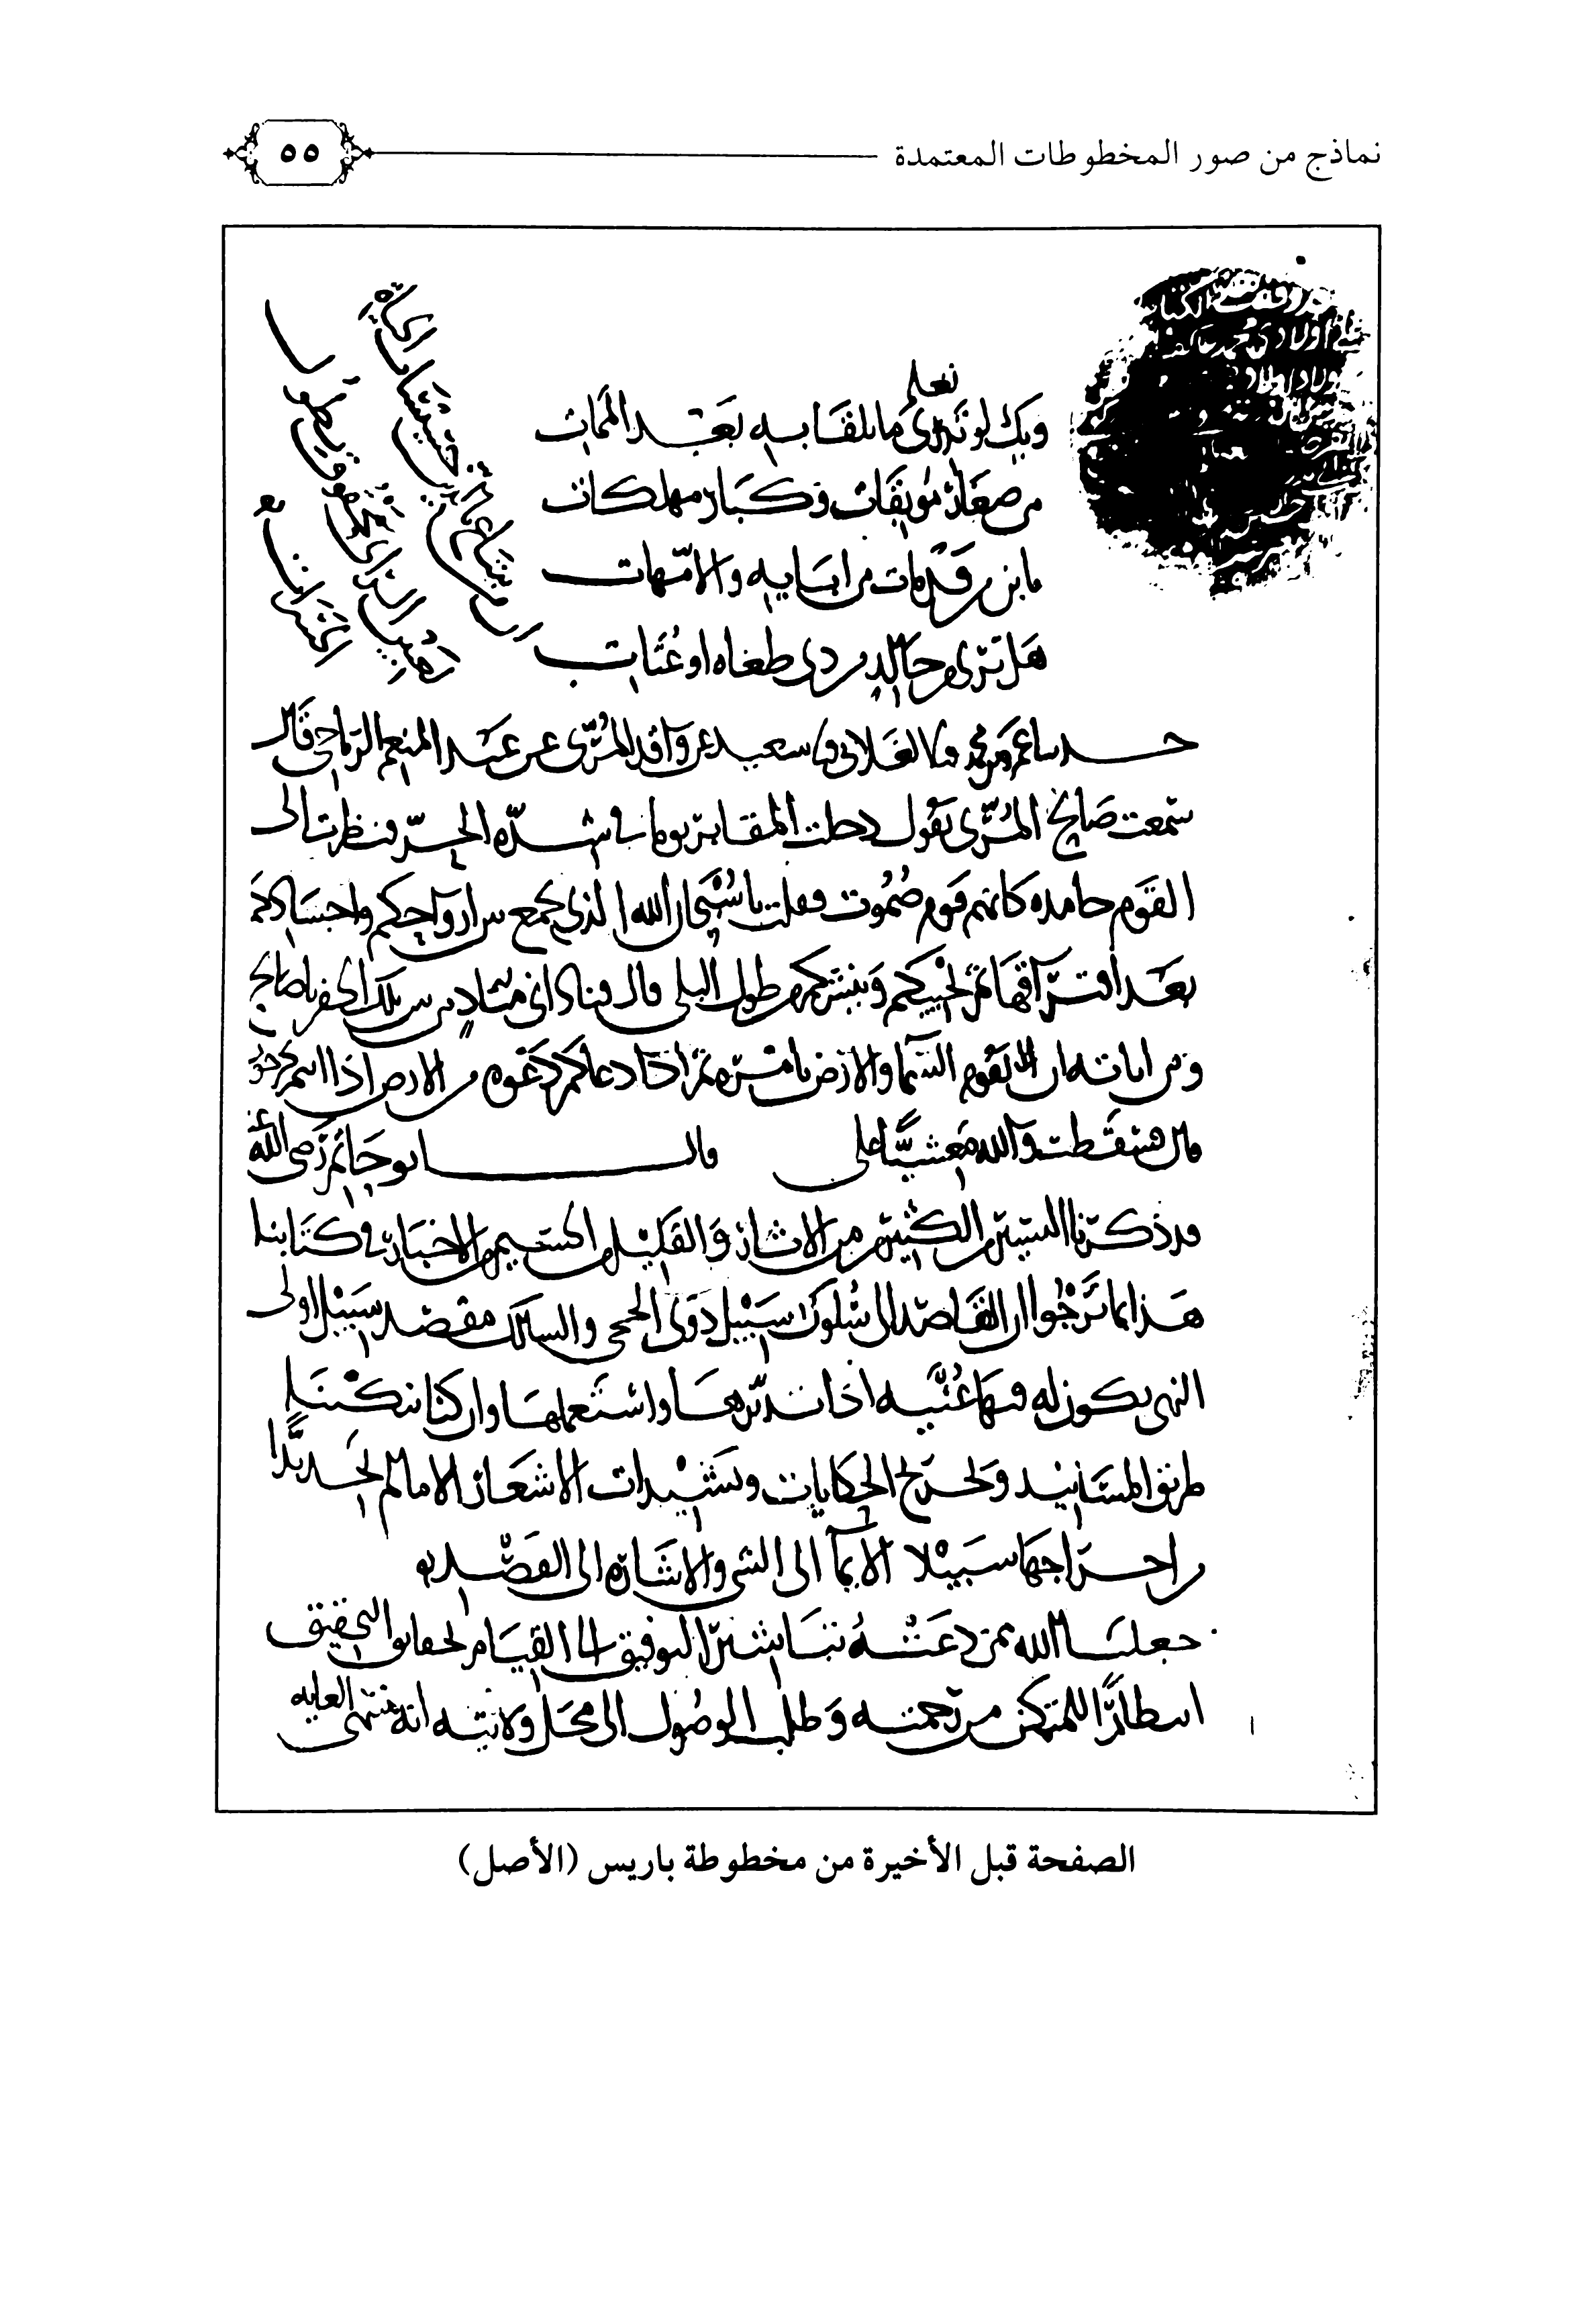 نماذج من صور المخطوطات المعتمدة
٥٥
تعلم
ويك لو تدرى ما تلقا به بعد الممات
من صغار موبقات وكبار مهلكات
يا بن من قد مات من ابايه والامهات
هل ترى من خالد من ذى طغاه او عتات
حدثنا عمرو بن محمد نا الغلابى نا سعيد عن واقد المرى عن عبد المنعم الرياحى قال
سمعت صالح المرى يقول دخلت المقابر يوما فى شدة الحر فنظرت الى
القوم خامده كانهم قوم صموت فقلت يا سبحان الله الذى يجمع بين ارواحكم واجسادكم
بعد افتراقها ثم يحييكم وينشركم من طول البلى قال فنادانى مناد من بين تلك الحفر يا صالح
ومن اياته ان تقوم السما والارض بامره ثم اذا دعاكم دعوة من الارض اذا انتم تخرجون
قال فسقطت والله مغشيا على قال ابو حاتم رضى الله عنه
قد ذكرنا اليسير من الكثير من الاثار والقليل من الجسيم من الاخبار فى كتابنا
هذا بما نرجوا ان القاصد الى سلوك سبيل ذوى الحجى والسالك مقصد سبيل اولى
النهى يكون له فيها غنيه اذا تدبرها واستعملها وان كنا تنكبنا
طريق المسانيد وتخريج الحكايات وتشبيدات الاشعار الا ما لم نجد بدا
من اخراجها سبيلا الايما الى الشى والاشارة الى القصد به
جعلنا الله ممن دعته تباشير التوفيق الى القيام لحقايق التحقيق
انتظارا للتمكن من رحمته وطلب الوصول الى محل ولايته انه منتهى الغايه
الصفحة قبل الأخيرة من مخطوطة باريس (الأصل)